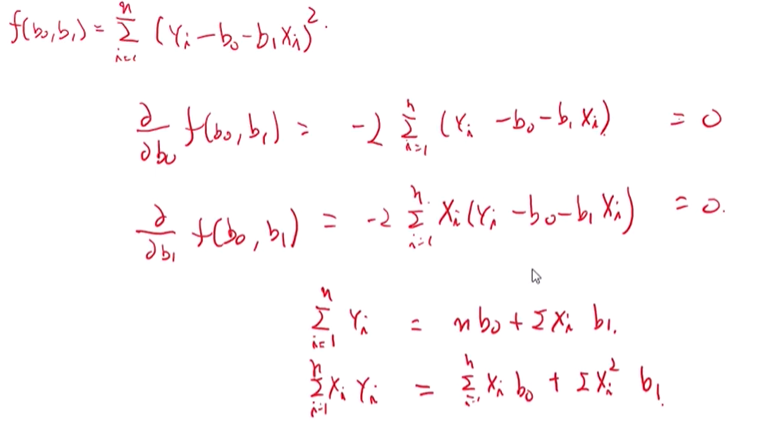 f(b₀,b₁) = Σᵢ₌₁ⁿ (Yᵢ − b₀ − b₁Xᵢ)².
∂/∂b₀ f(b₀,b₁) = −2 Σᵢ₌₁ⁿ (Yᵢ − b₀ − b₁Xᵢ) = 0
∂/∂b₁ f(b₀,b₁) = −2 Σᵢ₌₁ⁿ Xᵢ(Yᵢ − b₀ − b₁Xᵢ) = 0.
Σᵢ₌₁ⁿ Yᵢ = nb₀ + ΣXᵢ b₁.
Σᵢ₌₁ⁿ XᵢYᵢ = Σᵢ₌₁ⁿ Xᵢb₀ + ΣXᵢ² b₁.